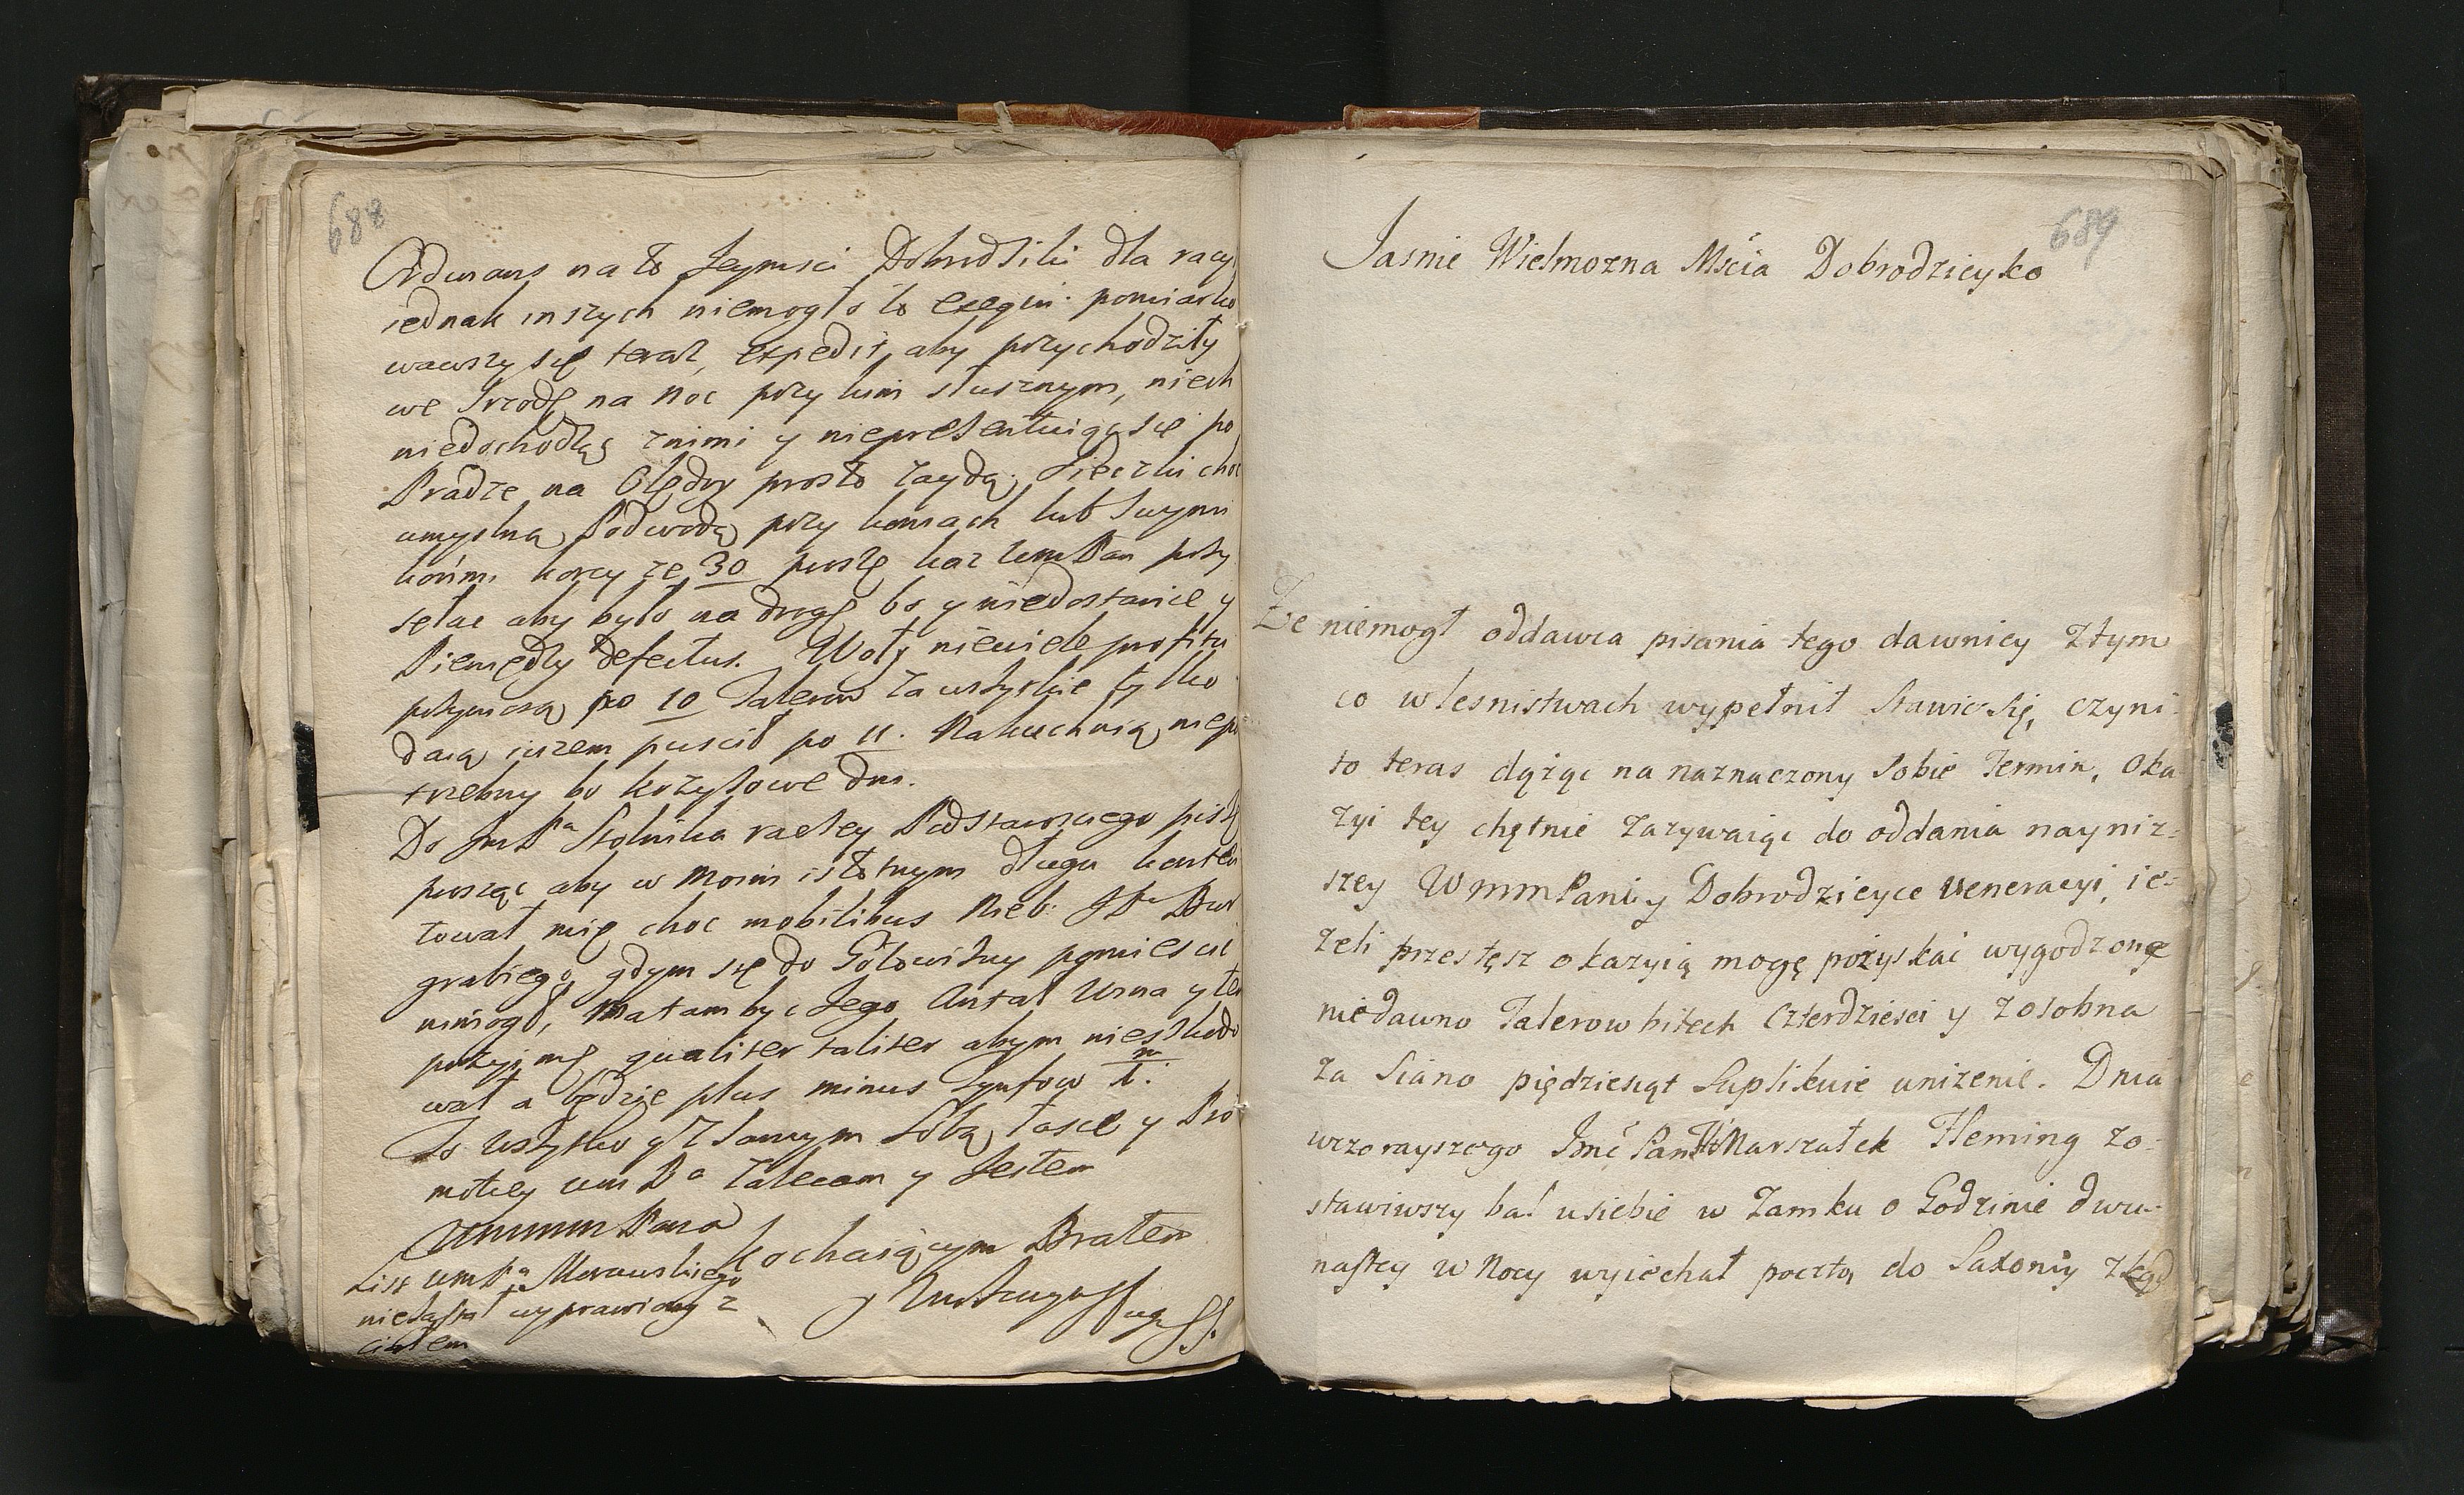 688
Ordinans na to Jeymsci Dobrodziki dla racy
iednak inszych niemogło to exequi. pomiarko
wawszy się teraz, expedit, aby przychodziły
we Srzodę na noc przy kim słusznym, niech
niedochodząc znimi y nieprezentuiąc się po
Pradze na Olędry prosto zaydą, Sieczki choc
umyslną Podwodą przy koniach lub Swymi
końmi korcy ze 30 proszę kaz WmPan przy
słac aby było na drogę bo y niedostanie y
Pieniędzy defectus. Woły niewiele profitu
przyniosą po 10 Talerow za wszystkie tylko
daią iuzem puscił po 11. Rakuchuią niepo
trzebny bo krzyżowe dni.
Do Jm Pa Stolnika raczey Podstawskiego piszę
prosząc aby w moim istotnym długu konten
tował mię choc mobilibus Nieb: JPa Bur
grabiego, gdym się do Gotowizny pomiescic
niemogł, Ma tam byc Jego Antał Wina y ten
przyimę qualiter taliter abym nieszkodo
wał a będzie plus minus Tynfow m/t.
To wszystko y z Samym Sobą łasce y Pro
mocyey wm Pa zalecam y Jestem
WmmmPana
kochaiącym Bratem
y
List wmPa Morawskiego
wyprawiony z
689
Jasnie Wielmozna Mścia Dobrodzieyko
Ze niemogł oddawca pisania tego dawniey ztym
co w lesnistwach wypełnił Stawic się, czyni
to teras dążąc na naznaczony Sobie Termin, Oka
zyi tey chętnie zazywaiąc do oddania nayniz-
szey WmmPani y Dobrodzieyce Veneracyi, ie-
zeli przestęsz okazyią mogę pozyskać wygodzone
niedawno Talerow bitech Czterdziesci y zosobna
za Siano piędziesiąt Suplikuie unizenie. Dnia
wczorayszego Jmć Pan Marszałek Fleming zo-
stawiwszy bal usiebie w Zamku o Godzinie dwu-
nastey w Nocy wyiechał pocztą do Saxoniy ztego